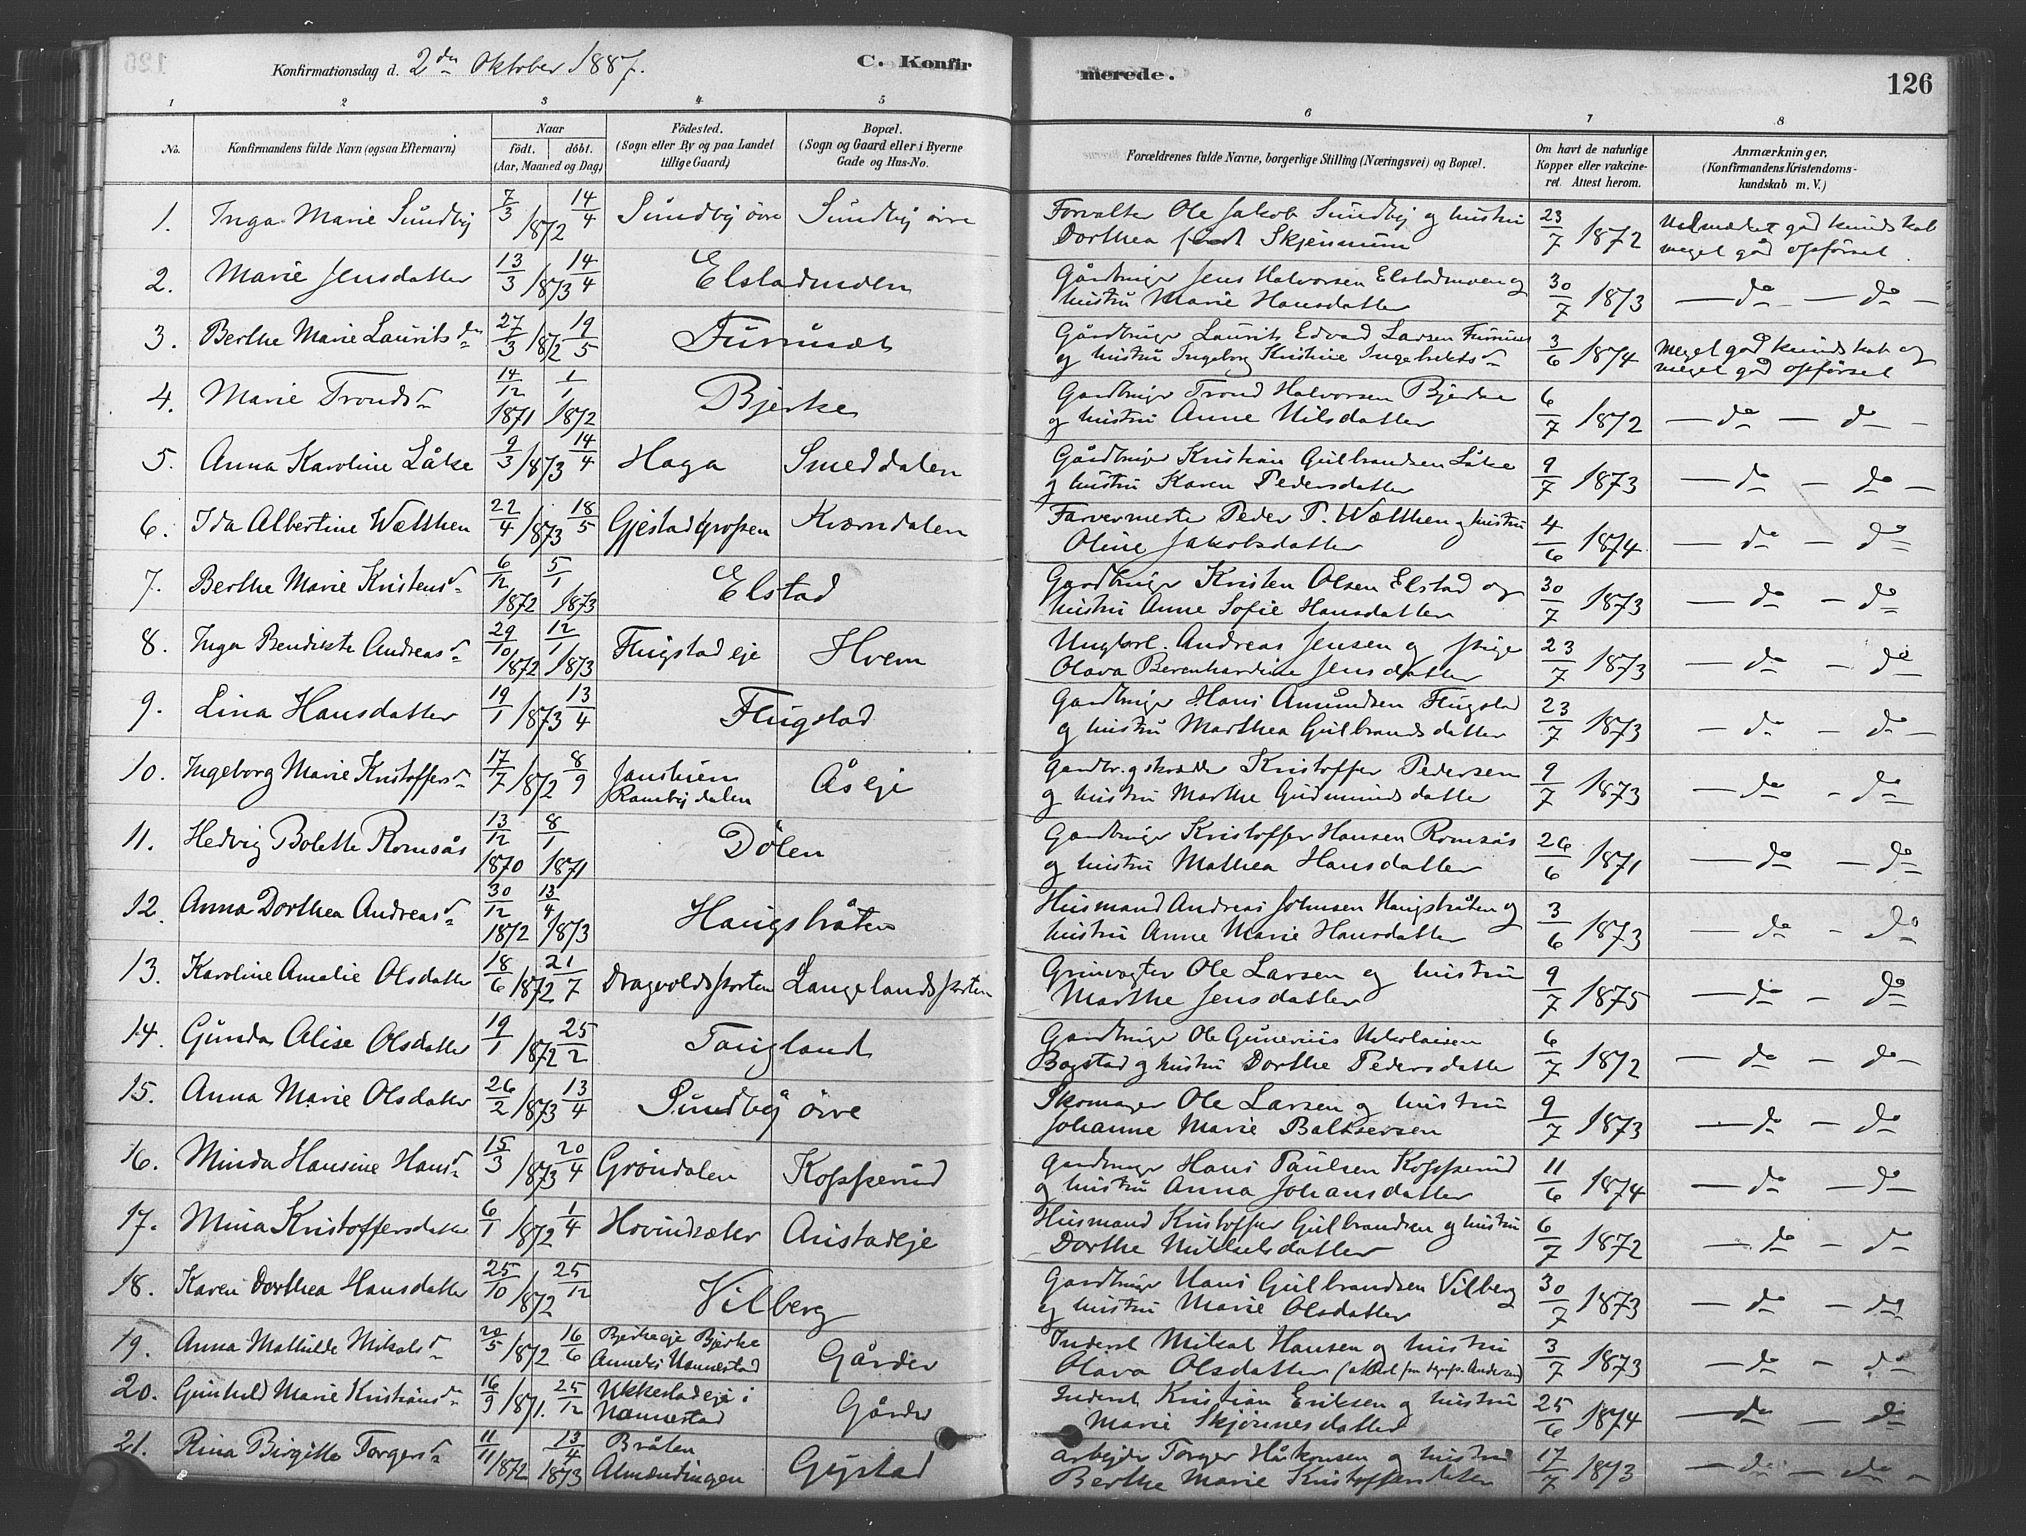 Konfirmationsdag d. 2den Oktober 1887.
C. Konfirmerede.
126
1 2 3 4 5 6 7 8
No. Konfirmandens fulde Navn (ogsaa Efternavn) Naar Født. døbt. (Aar, Maaned og Dag) Fødested. (Sogn eller By og paa Landet tillige Gaard) Bopæl. (Sogn og Gaard eller i Byerne Gade og Hus-No. Forældrenes fulde Navne, borgerlige Stilling (Næringsvei) og Bopæl. Om havt de naturlige Kopper eller vakcineret. Attest herom. Anmærkninger. (Konfirmandens Kristendomskundskab m. V.)
1. Inga Marie Sundby 7/3 1872 14/4 Sundby övre Sundby övre Forvalter Ole Jakob Sundby og hustru
Dorthea født Skjønnum 23/7 1872 Udmærket god kundskab
meget god opførsel.
2. Marie Jensdatter 13/3 1873 14/4 Elstadmoen Gårdbruger Jens Halvorsen Elstadmoen og
hustru Marie Hansdatter 30/7 1873 — do — do —
3. Berthe Marie Laurits dtr 27/3 1872 19/5 Furuset Gårdbruger Laurits Edvard Larsen
og hustru Ingeborg Kristine Ingebrets d 3/6 1874 Meget god kundskab og
meget god opførsel
4. Marie Tronds d 14/12 1871 1/1 1872 Bjerke Gardbruger Trond Halvorsen Bjerke
og hustru Anne Nilsdatter 6/7 1872 — do — do —
5. Anna Karoline Låke 9/3 1873 14/4 Haga Smeddalen Gårdbruger Kristian Gulbrandsen Låke
og hustru Karen Pedersdatter 9/7 1873 — do — do —
6. Ida Albertine Wælthen 22/4 1873 18/5 Gjestadgrossen Kværndalen Farvermester Peder P. Wælthen og hustru
Oline Jakobsdatter 4/6 1874 — do — do
7. Berthe Marie Kristens d 6/12 1872 5/1 1873 Elstad Gardbruger Kristen Olsen Elstad og
hustru Anne Sofie Hansdatter 30/7 1873 — do — do
8. Inga Bendikte Andreas d 29/10 1872 12/1 1873 Flugstad eje Hvem Ungkarl. Andreas Jensen og pige
Olava Berenhardine Jensdatter 23/7 1873 — do — do
9. Lina Hansdatter 19/1 1873 13/4 Flugstad Gardbruger Hans Amundsen Flugstad
og hustru Marthea Gulbrandsdatter 23/7 1873 — do — do —
10. Ingeborg Marie Kristoffers d 17/7 1872 8/9 Ås eje Gardbr. og skrædder Kristoffer Pedersen
og hustru Marthe Gudmundsdatter 9/7 1873 — do — do
11. Hedvig Bolette Romsås 13/12 1870 8/1 1871 Dölen Gardbruger Kristoffer Hansen Romsås
og hustru Mathea Hansdatter 26/6 1871 — do — do
12. Anna Dorthea Andreas d 30/12 1872 13/4 1873 Haugsbråten Husmand Andreas Johnsen Haugsbråten og
hustru Anne Marie Hansdatter 3/6 1873 — do — do
13. Karoline Amalie Olsdatter 18/6 1872 21/7 Dragvoldsporten Langelandsporten Grinvogter Ole Larsen og hustru
Marthe Jensdatter 9/7 1875 — do — do
14. Gunda Alise Olsdatter 19/1 1872 25/2 Taugland Gardbruger Ole Gunerius Nikolaisen
Bogstad og hustru Dorthe Pedersdatter 6/7 1872 — do — do —
15. Anna Marie Olsdatter 26/2 1873 13/4 Sundby övre Skomager Ole Larsen og hustru
Johanne Marie Baltsersen 9/7 1873 — do — do
16. Minda Hansine Hans d 15/3 1873 20/4 Gröndalen Kopperud Gardbruger Hans Paulsen Kopperud
og hustru Anna Johansdatter 11/6 1874 — do — do —
17. Mina Kristoffersdatter 6/1 1872 1/4 Hovindsæter Austad eje Husmand Kristoffer Gulbrandsen og hustru
Dorthe Mikkelsdatter 6/7 1872 — do — do
18. Karen Dorthea Hansdatter 25/10 1872 25/12 Vilberg Gardbruger Hans Gulbrandsen Vilberg
og hustru Marie Olsdatter 30/7 1873 — do — do
19. Anna Mathilde Mikals d 20/5 1872 16/6 Bjerke eje Bjerke
Anneks Nannestad Gårder Inderst Mikal Hansen og hustru
Olava Olsdatter 3/7 1873 — do — do
20. Gunhild Marie Kristians d 16/9 1871. 25/12 Ukkestad eje i
Nannestad Gårder Inderst Kristian Eriksen og hustru
Marie Skjönnesdatter 25/6 1874 — do — do
21. Rina Birgitte Torgers d 11/11 1872 13/4 1873 Bråten
Almændingen Gjestad Arbejder Torger Håkonsen og hustru
Berthe Marie Kristoffersdatter 17/7 1873 — do — do —